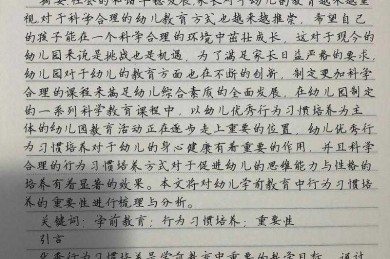 视对于科学合理的幼儿教育方式也越来越推崇，希望自己
的孩子能在一个科学合理的环境中茁壮成长，这对于现今的
幼儿园来说是挑战也是机遇，为了满足家长日益严格的要求，
幼儿园对于幼儿的教育方面也在不断的创新，制定更加科学
合理的课程来满足幼儿综合素质的全面发展，在幼儿园制定
的一系列科学教育课程中，以幼儿优秀行为习惯培养为主
体的幼儿园教育活动正在逐步走上重要的位置，幼儿优秀行
为习惯培养对于幼儿的身心健康有着重要的作用，并且科学
合理的行为习惯培养方式对于促进幼儿的思维能力与性格的
培养有着显著的效果。本文将对幼儿学前教育中行为习惯培养
的重要性进行梳理与分析。
关键词：学前教育；行为习惯培养；重要性
引言